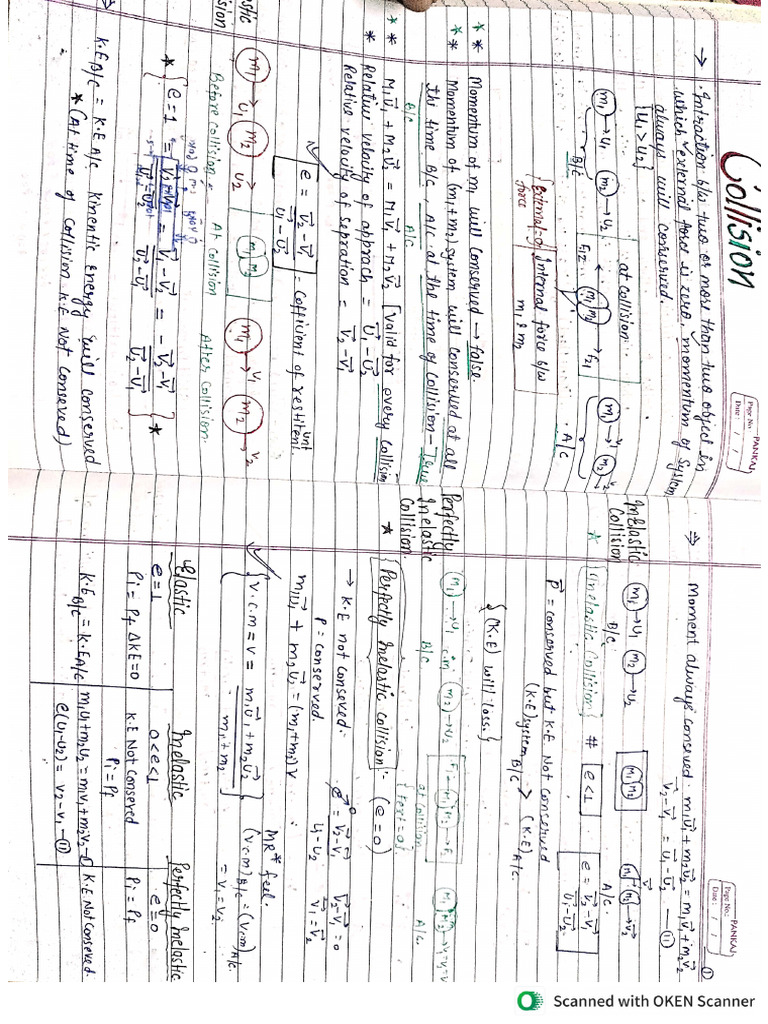 Collision
PANKAJ
Page No.:
Date: / /
→ Intraction b/w two or more than two object in
which external force is zero, momentum of System
always will conserved.
{U₁ > U₂}
m₁ → U₁ m₂ → U₂
B/c
at collision.
F₁₂ ← m₁ m₂ → F₂₁
m₁ → V₁ m₂ → V₂
A/c
Internal force b/w
m₁ & m₂
** Momentum of m₁ will conserved → false.
** Momentum of (m₁+m₂) system will conserved at all
the time B/c, A/c at the time of collision - True
B/c A/c
** M₁U⃗₁ + m₂U⃗₂ = M₁V⃗₁ + m₂V⃗₂ [Valid for every Collision
* Relative velocity of apprach = U⃗₁ - U⃗₂
Relative velocity of sepration = V⃗₂ - V⃗₁
e = V⃗₂ - V⃗₁ / U⃗₁ - U⃗₂ = Cofficient of restitunt
m₁ → U₁ m₂ → U₂
m₁ m₂
m₁ → V₁ m₂ → V₂
Before collision = At collision After collision.
* { e = 1 = V⃗₁ - V⃗₂ / U⃗₂ - U⃗₁ = - V⃗₂ - V⃗₁ / U⃗₂ - U⃗₁ } *
K.E B/c = K.E A/c Kinentic energy will conserved
* (At time of collision K.E Not Conseved)
PANKAJ
Page No.:
Date: / /
⇒ Moment always conserved. m₁U⃗₁ + m₂U⃗₂ = m₁V⃗₁ + m⃗₂V⃗₂ ①
V⃗₂ - V⃗₁ = U⃗₁ - U⃗₂ — ⑪
InElastic
Collision
m₁ → U₁ m₂ → U₂
B/c
m₁ m₂
A/c.
* {Inelastic Collision} # e < 1 e = V⃗₂ - V⃗₁ / U⃗₁ - U⃗₂
P⃗ = conserved but K.E Not conserved
(K.E) system B/c > (K.E) A/c.
{(K.E) will loss.}
Perfectly
Inelastic
Collision.
m₁ → U₁ c.m m₂ → U₂
B/c
at collision
{Fext = 0}
A/c.
* {Perfectly Inelastic collision}. (e = 0)
→ K.E not conseved.
e = V⃗₂ - V⃗₁ / U₁ - U₂
V⃗₂ - V⃗₁ = 0
V⃗₁ = V⃗₂
P = conserved.
m₁U⃗₁ + m₂U⃗₂ = (m₁+m₂)V
MR* feel.
{V.c.m = V = m₁U⃗₁ + m₂U⃗₂ / m₁ + m₂}
(V c.m) B/c = (V cm) A/c.
= V₁ = V₂
Elastic Inelastic Perfectly Inelastic
e = 1 0 < e < 1 e = 0
Pi = Pf ΔKE = 0 K.E Not Conseved Pi = Pf
Pi = Pf
K.E B/c = K.E A/c m₁U₁ + m₂U₂ = m₁V₁ + m₂V₂ -① K.E Not Conseved.
e(U₁ - U₂) = V₂ - V₁ -⑪
Scanned with OKEN Scanner